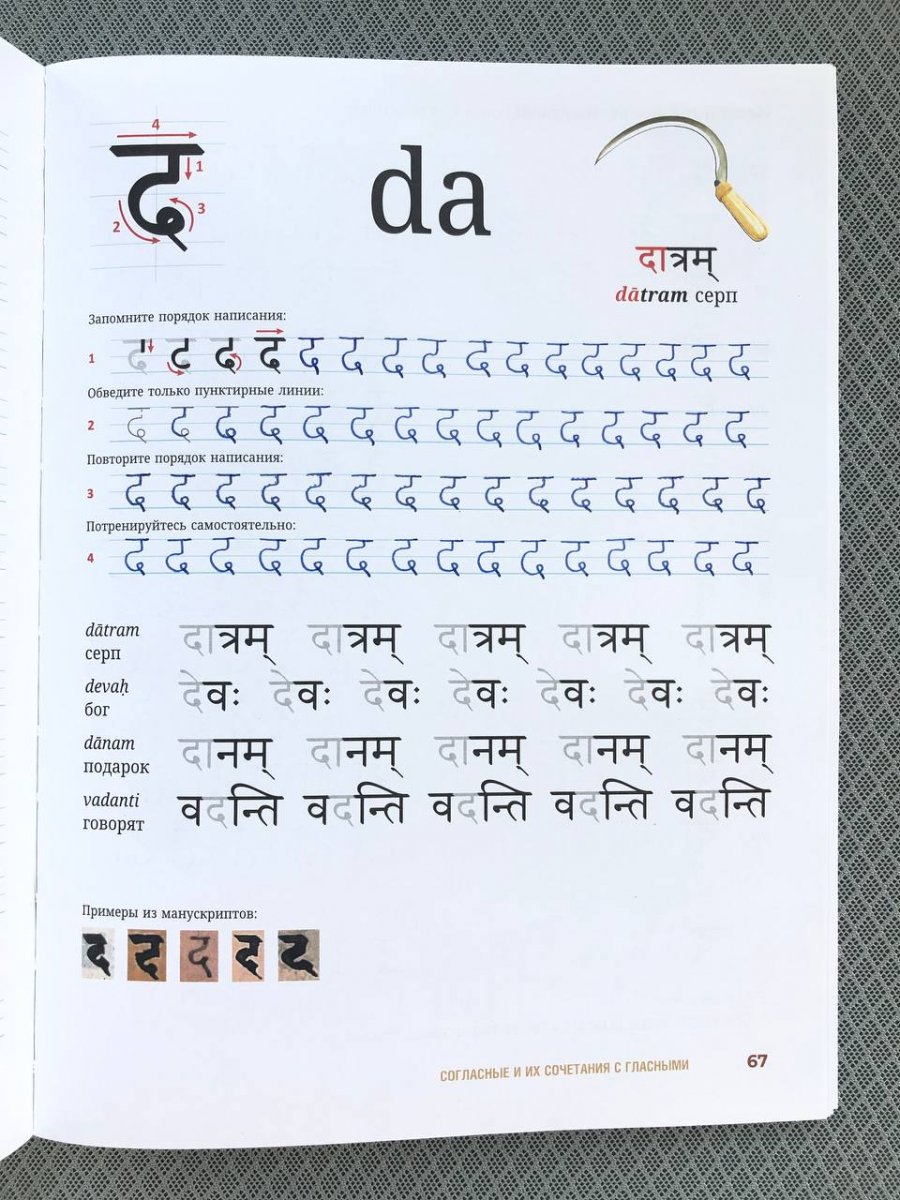 4
1
2
3
द
da
दात्रम्
dātram серп
Запомните порядок написания:
1 द द द द द द द द द द द द द द द द
Обведите только пунктирные линии:
2 द द द द द द द द द द द द द द द
Повторите порядок написания:
3 द द द द द द द द द द द द द द द
Потренируйтесь самостоятельно:
4 द द द द द द द द द द द द द द द
dātram
серп
दात्रम् दात्रम् दात्रम् दात्रम् दात्रम्
devaḥ
бог
देवः देवः देवः देवः देवः देवः देवः
dānam
подарок
दानम् दानम् दानम् दानम् दानम्
vadanti
говорят
वदन्ति वदन्ति वदन्ति वदन्ति वदन्ति
Примеры из манускриптов:
द द द द द
СОГЛАСНЫЕ И ИХ СОЧЕТАНИЯ С ГЛАСНЫМИ 67